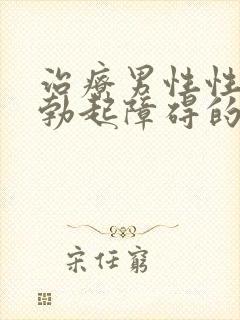 治疗男性性
勃起障碍的
宋任穷